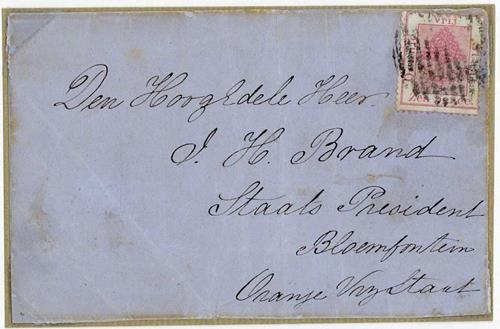 Den HoogEdele Heer.
J. H. Brand
Staats President
Bloemfontein
Oranje Vrij Staat